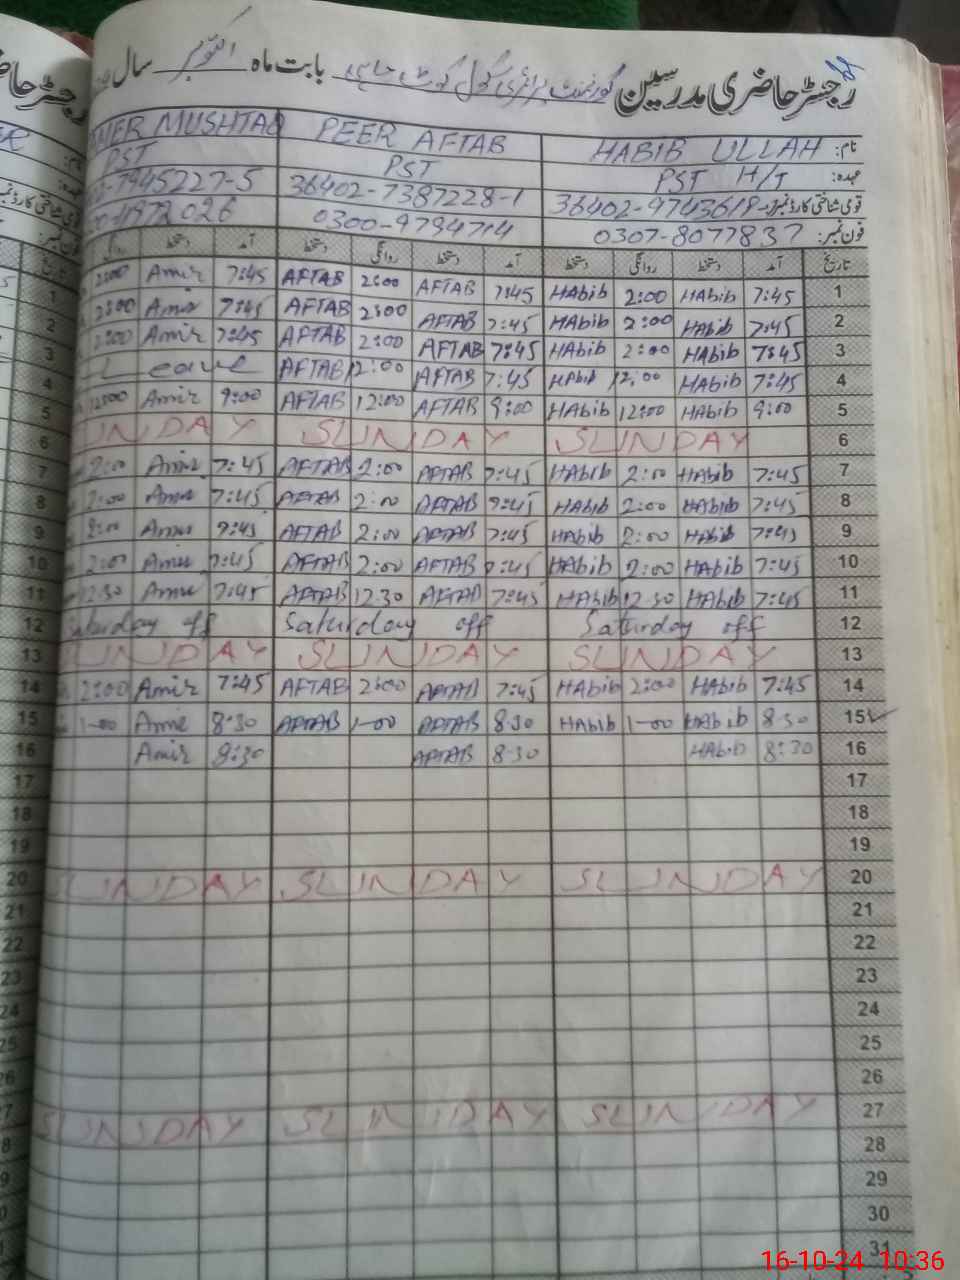 رجسٹر حاضری مدرسین گورنمنٹ پرائمری سکول بابت ماہ اکتوبر سال
نام: HABIB ULLAH PEER AFTAB MUSHTAQ
عہدہ: PST H/T PST PST
قومی شناختی کارڈ نمبر: 36402-7387228-1 7945227-5
فون نمبر: 0307-8077837 0300-9794714
تاریخ آمد دستخط روانگی دستخط آمد دستخط روانگی دستخط آمد دستخط روانگی
2:00 Amir 7:45 AFTAB 2:00 AFTAB 7:45 HAbib 2:00 HAbib 7:45 1
2:00 Amir 7:45 AFTAB 2:00 AFTAB 7:45 HAbib 2:00 HAbib 7:45 2
2:00 Amir 7:45 AFTAB 2:00 AFTAB 7:45 HAbib 2:00 HAbib 7:45 3
Leave AFTAB 12:00 AFTAB 7:45 HAbib 12:00 HAbib 7:45 4
12:00 Amir 9:00 AFTAB 12:00 AFTAB 9:00 HAbib 12:00 HAbib 9:00 5
SUNDAY SUNDAY SUNDAY 6
2:00 Amir 7:45 AFTAB 2:00 AFTAB 7:45 HAbib 2:00 HAbib 7:45 7
2:00 Amir 7:45 AFTAB 2:00 AFTAB 7:45 HAbib 2:00 HAbib 7:45 8
2:00 Amir 7:45 AFTAB 2:00 AFTAB 7:45 HAbib 2:00 HAbib 7:45 9
2:00 Amir 7:45 AFTAB 2:00 AFTAB 7:45 HAbib 2:00 HAbib 7:45 10
12:30 Amir 7:45 AFTAB 12:30 AFTAB 7:45 HAbib 12:30 HAbib 7:45 11
Saturday off Saturday off Saturday off 12
SUNDAY SUNDAY SUNDAY 13
2:00 Amir 7:45 AFTAB 2:00 AFTAB 7:45 HAbib 2:00 HAbib 7:45 14
1-00 Amir 8:30 AFTAB 1-00 AFTAB 8:30 HAbib 1-00 HAbib 8:30 15
Amir 8:30 AFTAB 8:30 HAbib 8:30 16
17
18
19
SUNDAY SUNDAY SUNDAY 20
21
22
23
24
25
26
SUNDAY SUNDAY SUNDAY 27
28
29
30
31
16-10-24 10:36